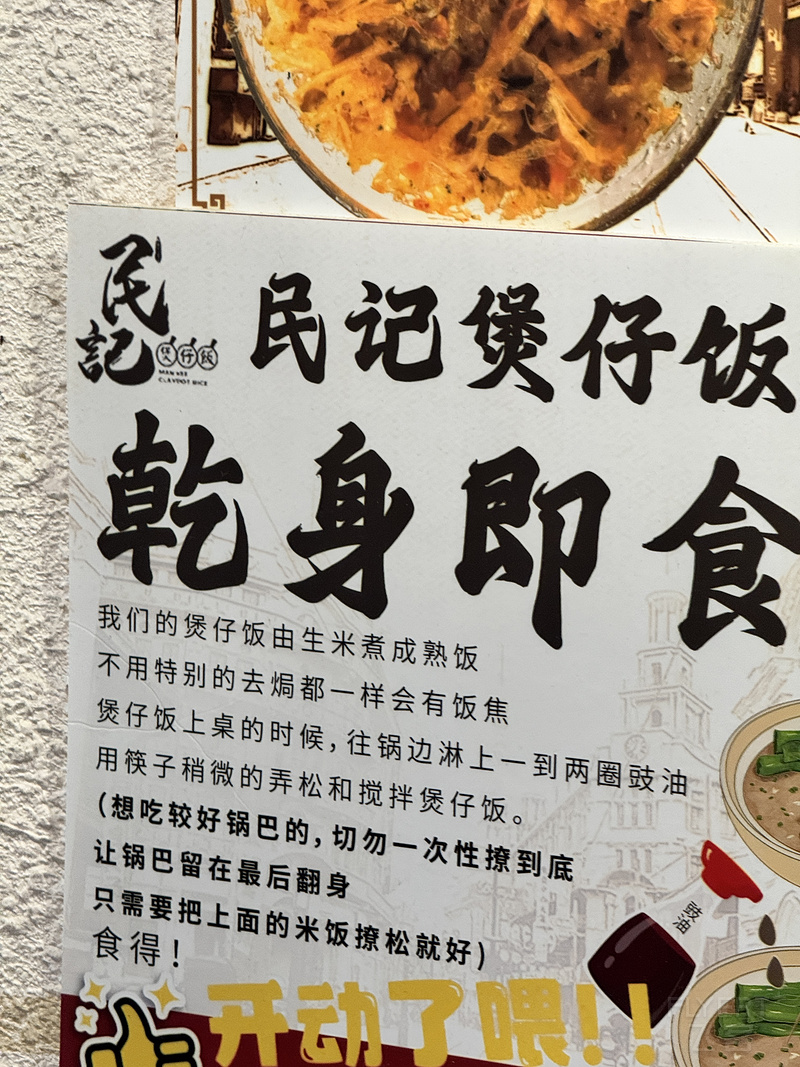 民記
煲仔飯
MAN KEE
CLAYPOT RICE
民记煲仔饭
乾身即食
我们的煲仔饭由生米煮成熟饭
不用特别的去焗都一样会有饭焦
煲仔饭上桌的时候，往锅边淋上一到两圈豉油
用筷子稍微的弄松和搅拌煲仔饭。
（想吃较好锅巴的，切勿一次性撩到底
让锅巴留在最后翻身
只需要把上面的米饭撩松就好）
食得！
豉油
开动了喂！！